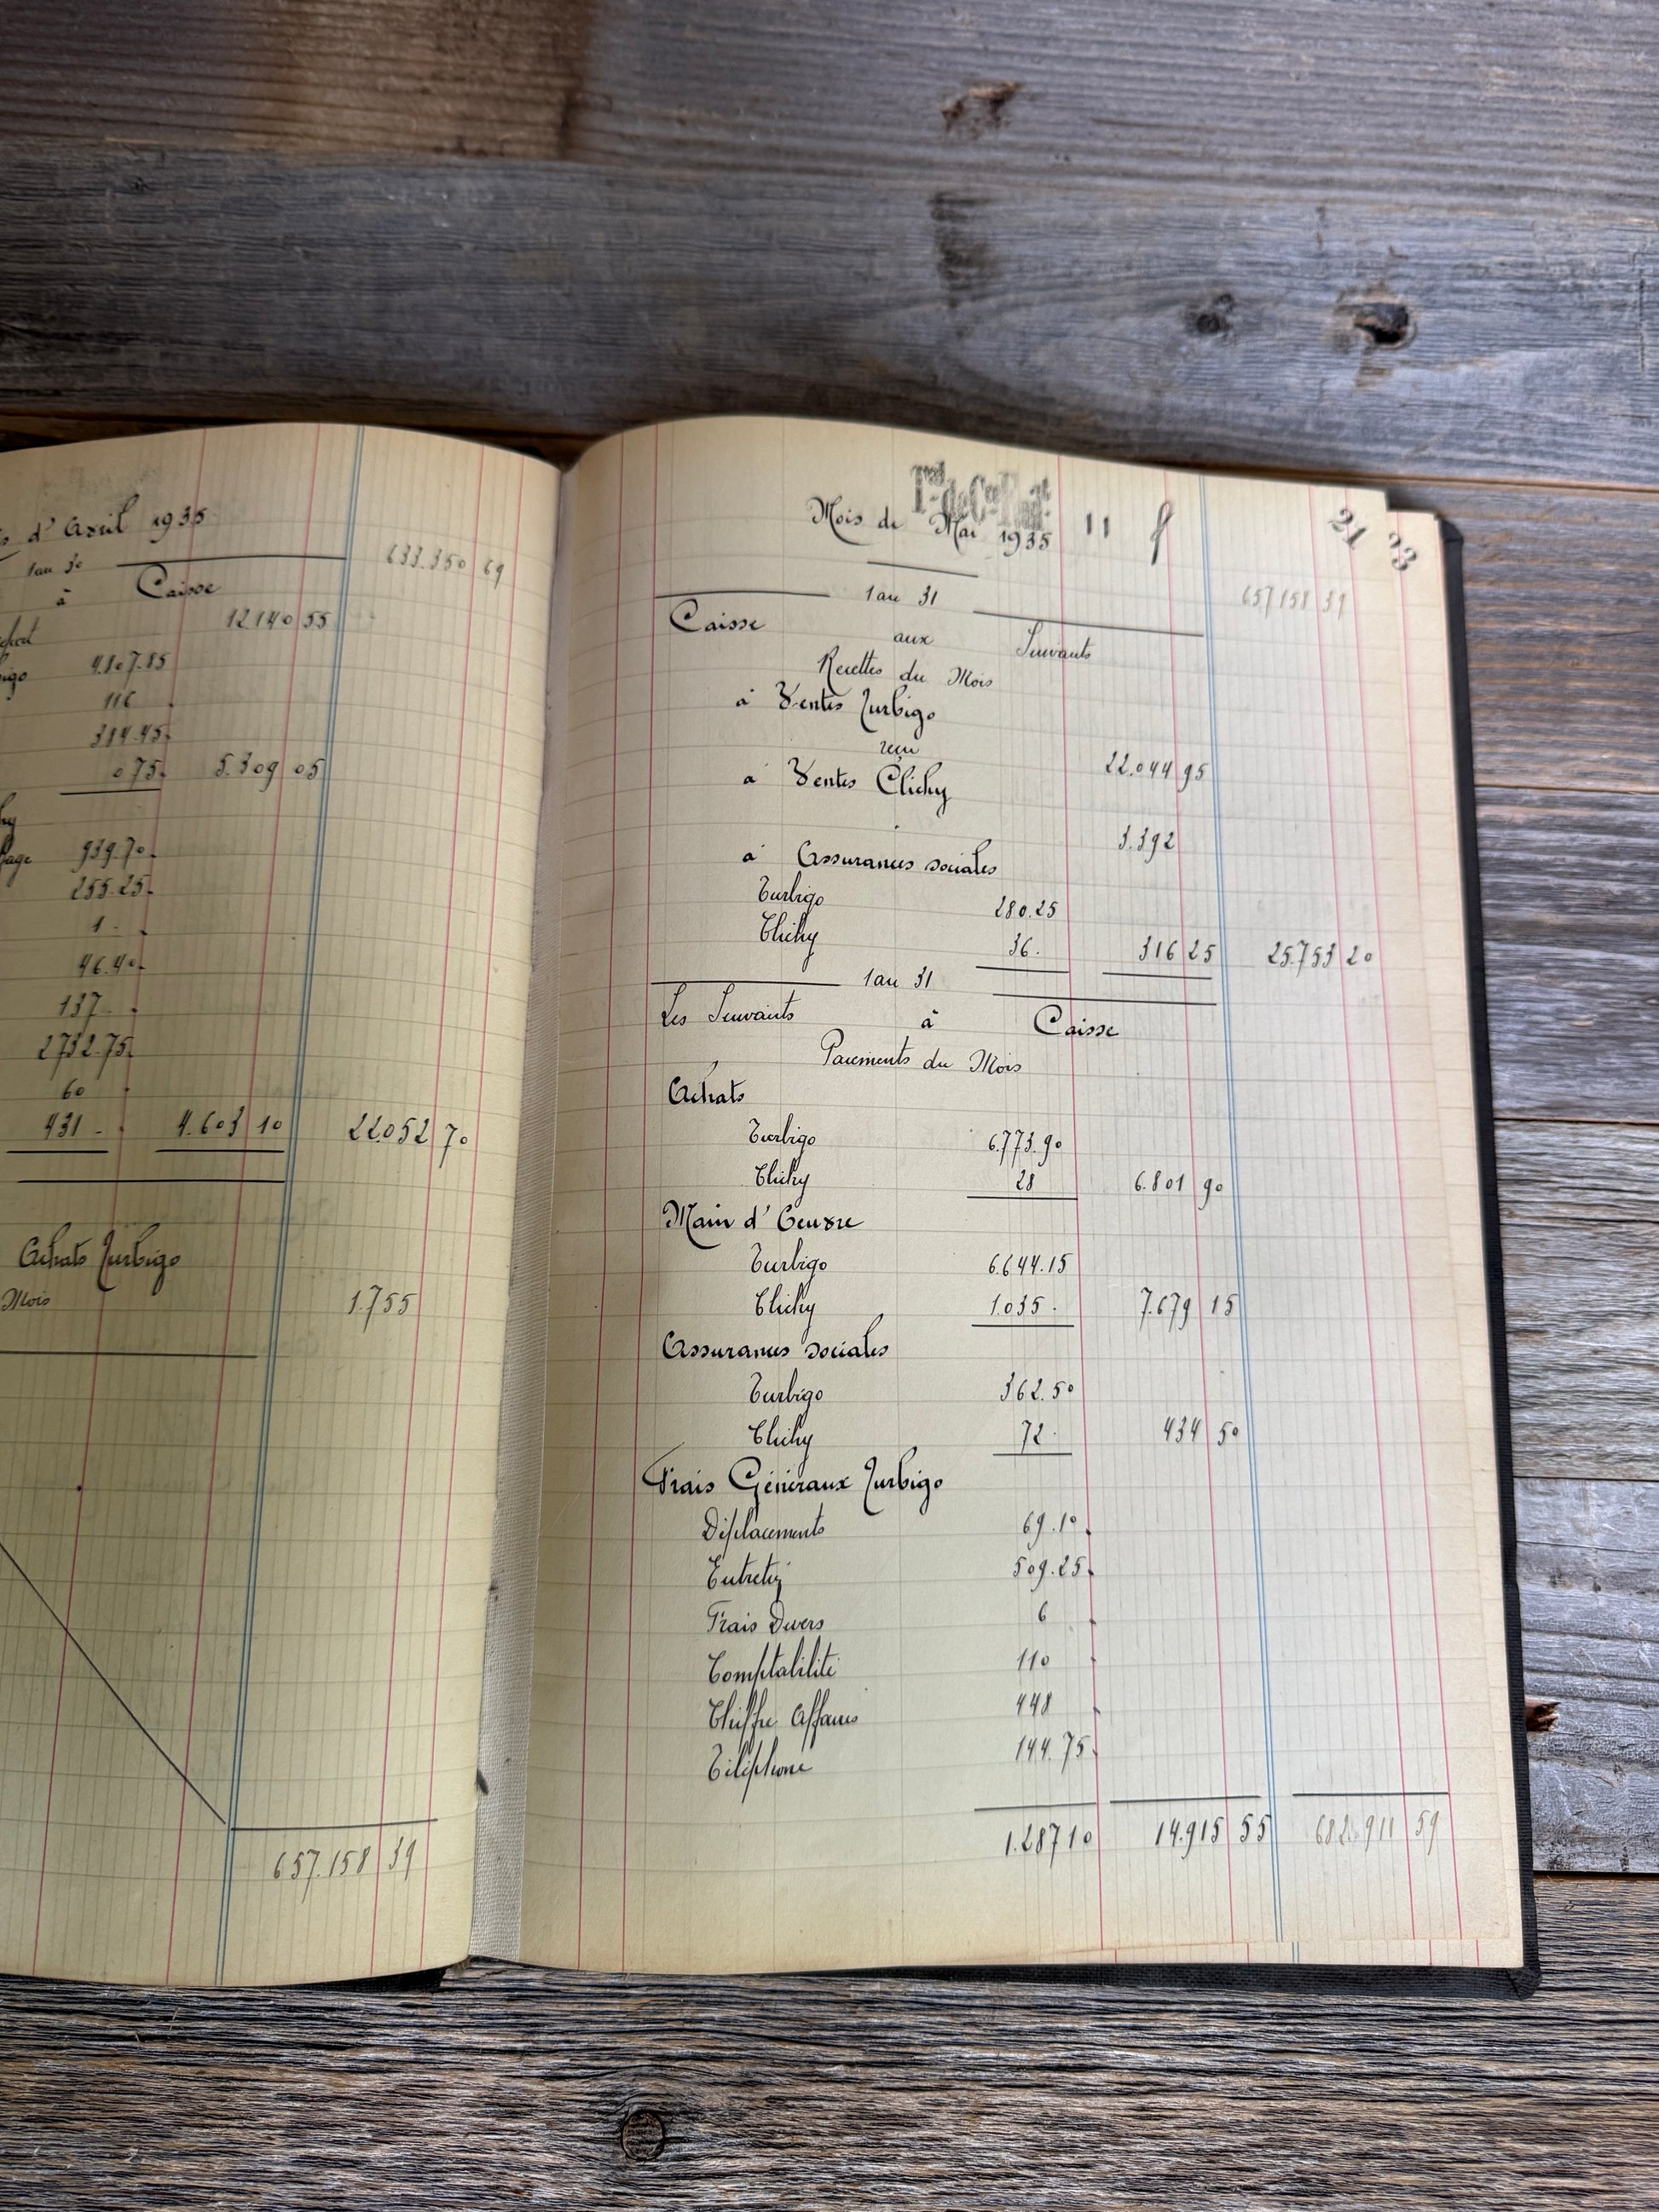 d'Avril 1935
1 au 30
633.350 69
à Caisse
12.140 55
4.807.85
116
384.45
0 75. 5.309 05
939.70.
255.25.
1 -
46.40.
137 -
2732.75
60
431 - 4.603 10 22.052 70
Achats Turbigo
Mois
1.755
657.158 39
Mois de Mai 1935
11
21
23
1 au 31
657 158 39
Caisse aux Suivants
Recettes du Mois
à Ventes Turbigo
reçu 22.044 95
à Ventes Clichy
3.392
à Assurances sociales
Turbigo 280.25
Clichy 36. 316 25 25.753 20
1 au 31
Les Suivants à Caisse
Paiements du Mois
Achats
Turbigo 6.773.90
Clichy 28 6.801 90
Main d'Oeuvre
Turbigo 6.644.15
Clichy 1.035 - 7.679 15
Assurances sociales
Turbigo 362.50
Clichy 72. 434 50
Frais Généraux Turbigo
Déplacements 69.10
Entretien 509.25
Frais Divers 6
Comptabilité 110
Chiffre Affaires 448
Téléphone 144.75
1.287 10 14.915 55 682.911 59